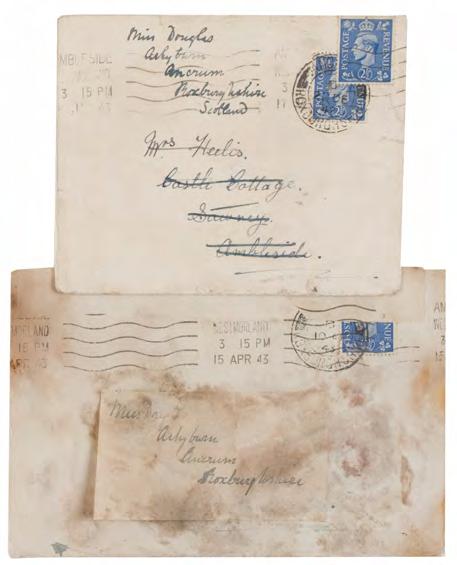 Miss Douglas
Ashyburn
Ancrum
Roxburghshire
Scotland
AMBLESIDE
3 15 PM
43
POSTAGE REVENUE
2½D
Mrs Heelis.
Castle Cottage.
Sawrey.
Ambleside.
WESTMORLAND
3 15 PM
15 APR 43
15 PM
APR 43
Ashyburn
Ancrum
Roxburghshire